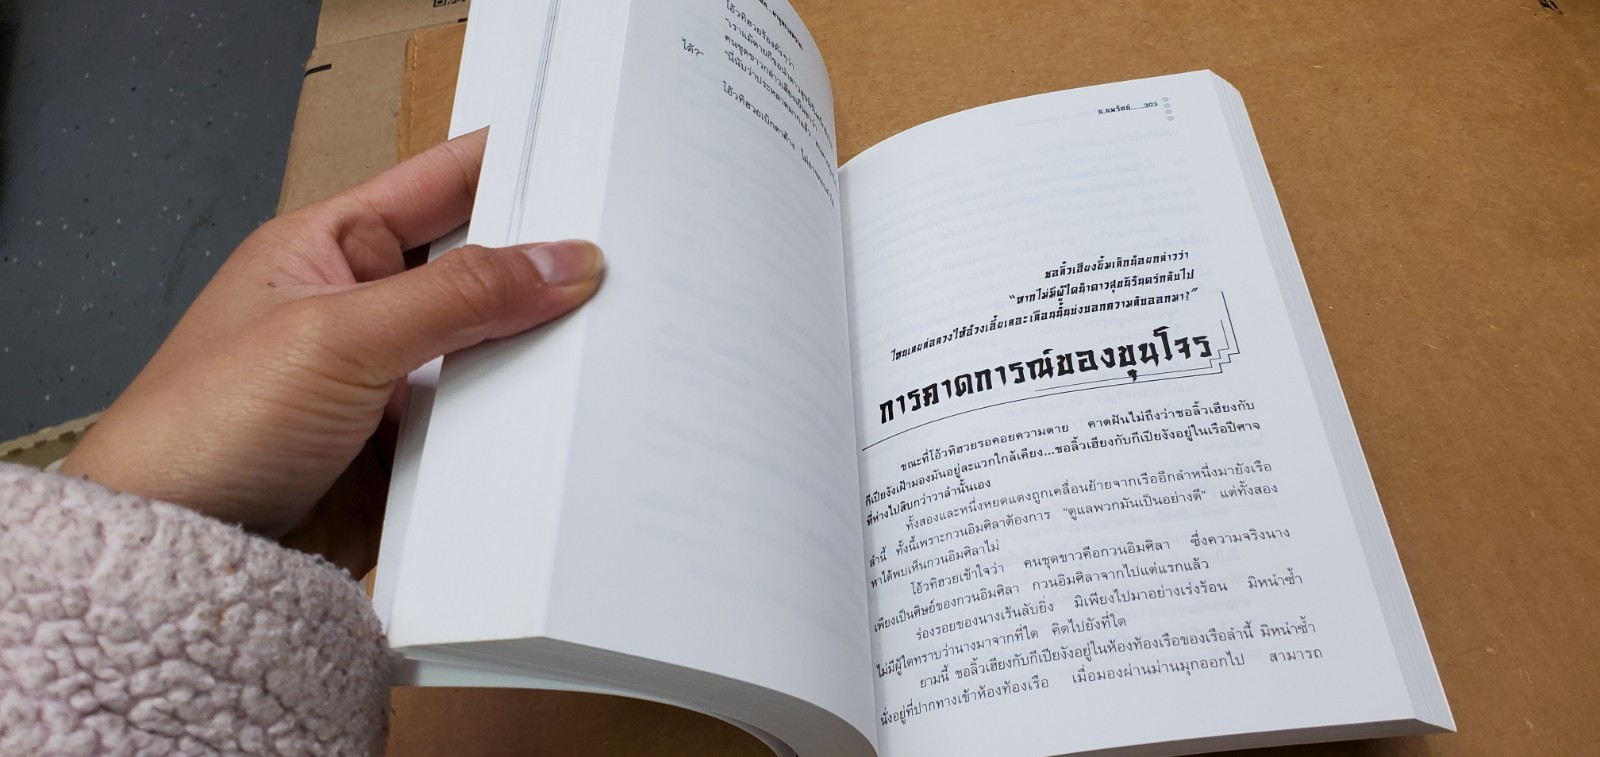 โอ้วทิฮวยร้องดังๆว่า
คนชุดขาวกล่าวเสียงเย็นชาว่า
ได้?"
"นี่นับว่าประหลาดมากแล้ว
โอ้วทิฮวยเบิกตาค้าง
น.นพรัตน์.....303
ชอลิ้วเฮียงยิ้มเล็กน้อยกล่าวว่า
"หากไม่มีผู้ใดนำดาวสุขนิรันดร์กลับไป
ไหนเลยล่อลวงให้อ้วงเอี้ยเลอะเลือนนั้นบ่งบอกความลับออกมา?"
การคาดการณ์ของขุนโจร
ขณะที่โอ้วทิฮวยรอคอยความตาย คาดฝันไม่ถึงว่าชอลิ้วเฮียงกับ
กีเปียงังเฝ้ามองมันอยู่ละแวกใกล้เคียง...ชอลิ้วเฮียงกับกีเปียงังอยู่ในเรือปีศาจ
ที่ห่างไปสิบกว่าวาลำนั้นเอง
ทั้งสองและหนึ่งหยดแดงถูกเคลื่อนย้ายจากเรืออีกลำหนึ่งมายังเรือ
ลำนี้ ทั้งนี้เพราะกวนอิมศิลาต้องการ "ดูแลพวกมันเป็นอย่างดี" แต่ทั้งสอง
หาได้พบเห็นกวนอิมศิลาไม่
โอ้วทิฮวยเข้าใจว่า คนชุดขาวคือกวนอิมศิลา ซึ่งความจริงนาง
เพียงเป็นศิษย์ของกวนอิมศิลา กวนอิมศิลาจากไปแต่แรกแล้ว
ร่องรอยของนางเร้นลับยิ่ง มิเพียงไปมาอย่างเร่งร้อน มิหนำซ้ำ
ไม่มีผู้ใดทราบว่านางมาจากที่ใด คิดไปยังที่ใด
ยามนี้ ชอลิ้วเฮียงกับกีเปียงังอยู่ในห้องท้องเรือของเรือลำนี้ มิหนำซ้ำ
นั่งอยู่ที่ปากทางเข้าห้องท้องเรือ เมื่อมองผ่านม่านมุกออกไป สามารถ